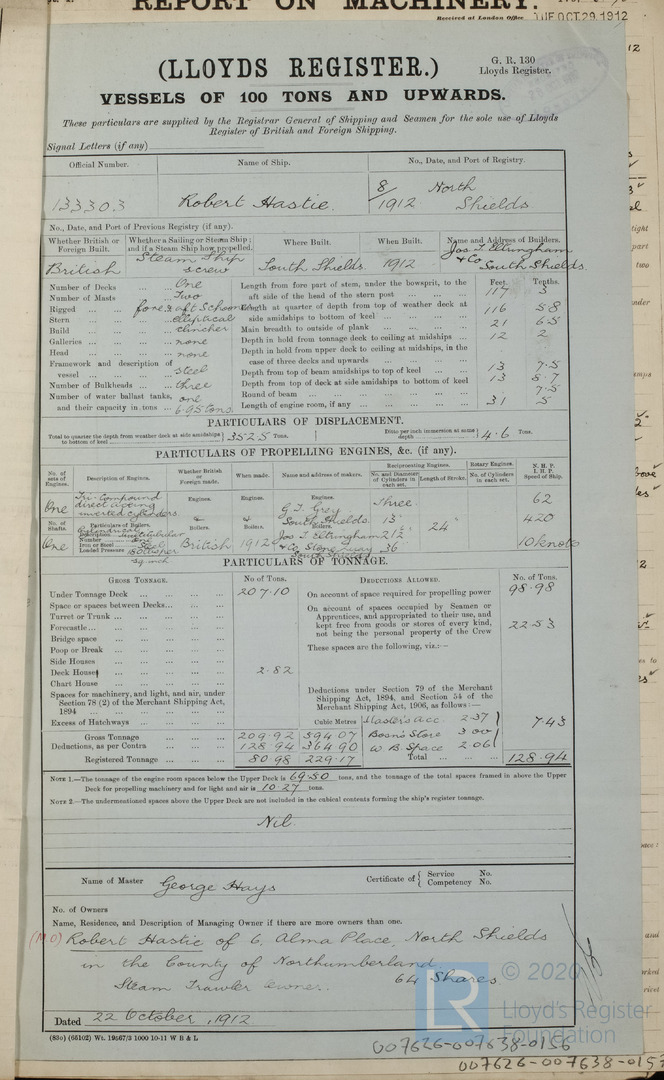 REPORT ON MACHINERY.
Received at London Office TUE OCT. 29. 1912
(LLOYDS REGISTER.)
G. R. 130
Lloyds Register.
VESSELS OF 100 TONS AND UPWARDS.
These particulars are supplied by the Registrar General of Shipping and Seamen for the sole use of Lloyds
Register of British and Foreign Shipping.
Signal Letters (if any)
Official Number. Name of Ship. No., Date, and Port of Registry.
133303 Robert Hastie. 8/1912 North Shields
No., Date, and Port of Previous Registry (if any).
Whether British or Foreign Built. Whether a Sailing or Steam Ship; and if a Steam Ship how propelled. Where Built. When Built. Name and Address of Builders.
British Steam Ship screw South Shields 1912 Jos T. Eltringham & Co South Shields
Number of Decks One
Number of Masts Two
Rigged fore & aft Schooner
Stern elliptical
Build clincher
Galleries none
Head none
Framework and description of vessel steel
Number of Bulkheads three
Number of water ballast tanks, and their capacity in tons one 6.95 tons
Feet. Tenths.
Length from fore part of stem, under the bowsprit, to the aft side of the head of the stern post 117 3
Length at quarter of depth from top of weather deck at side amidships to bottom of keel 116 58
Main breadth to outside of plank 21 65
Depth in hold from tonnage deck to ceiling at midships 12 2
Depth in hold from upper deck to ceiling at midships, in the case of three decks and upwards
Depth from top of beam amidships to top of keel 13 7.5
Depth from top of deck at side amidships to bottom of keel 13 8.7
Round of beam 7.5
Length of engine room, if any 31 5
PARTICULARS OF DISPLACEMENT.
Total to quarter the depth from weather deck at side amidships to bottom of keel 352.5 Tons. Ditto per inch immersion at same depth 4.6 Tons.
PARTICULARS OF PROPELLING ENGINES, &c. (if any).
No. of sets of Engines. Description of Engines. Whether British or Foreign made. When made. Name and address of makers. Reciprocating Engines. Rotary Engines. N.H.P. I.H.P. Speed of Ship.
No. and Diameter of Cylinders in each set. Length of Stroke. No. of Cylinders in each set.
One Tri-Compound direct acting inverted cylinders Engines. Engines. Engines. G. T. Grey South Shields Three 62
No. of Shafts. Particulars of Boilers. Boilers. Boilers. 13 24" 420
One Description Cylindrical multitubular
Number One
Iron or Steel Steel
Loaded Pressure sq inch
British 1912 Jos T Eltringham & Co Stone Quay South Shields 21½ 36 10 knots
PARTICULARS OF TONNAGE.
GROSS TONNAGE. No. of Tons. DEDUCTIONS ALLOWED. No. of Tons.
Under Tonnage Deck 207.10
Space or spaces between Decks
Turret or Trunk
Forecastle
Bridge space
Poop or Break
Side Houses
Deck Houses 2.82
Chart House
Spaces for machinery, and light, and air, under Section 78 (2) of the Merchant Shipping Act, 1894
Excess of Hatchways
Gross Tonnage 209.92 594.07
Deductions, as per Contra 128.94 364.90
Registered Tonnage 80.98 229.17
On account of space required for propelling power 98.98
On account of spaces occupied by Seamen or Apprentices, and appropriated to their use, and kept free from goods or stores of every kind, not being the personal property of the Crew 22.53
These spaces are the following, viz.:—
Deductions under Section 79 of the Merchant Shipping Act, 1894, and Section 54 of the Merchant Shipping Act, 1906, as follows:—
Cubic Metres Master's Acc. 2.37
Bosn's Store 3.00 7.43
W. B. Space 2.06
Total 128.94
NOTE 1.—The tonnage of the engine room spaces below the Upper Deck is 69.50 tons, and the tonnage of the total spaces framed in above the Upper
Deck for propelling machinery and for light and air is 10.27 tons.
NOTE 2.—The undermentioned spaces above the Upper Deck are not included in the cubical contents forming the ship's register tonnage.
Nil
Name of Master George Hays Certificate of { Service No. Competency No.
No. of Owners
Name, Residence, and Description of Managing Owner if there are more owners than one.
(M.O) Robert Hastie of 6, Alma Place, North Shields
in the County of Northumberland
Steam Trawler Owner. 64 Shares
Dated 22 October, 1912
(830) (65102) Wt. 19567/3 1000 10-11 W B & L
© 2020
Lloyd's Register
Foundation
007626-007638-0156
007626-007638-015